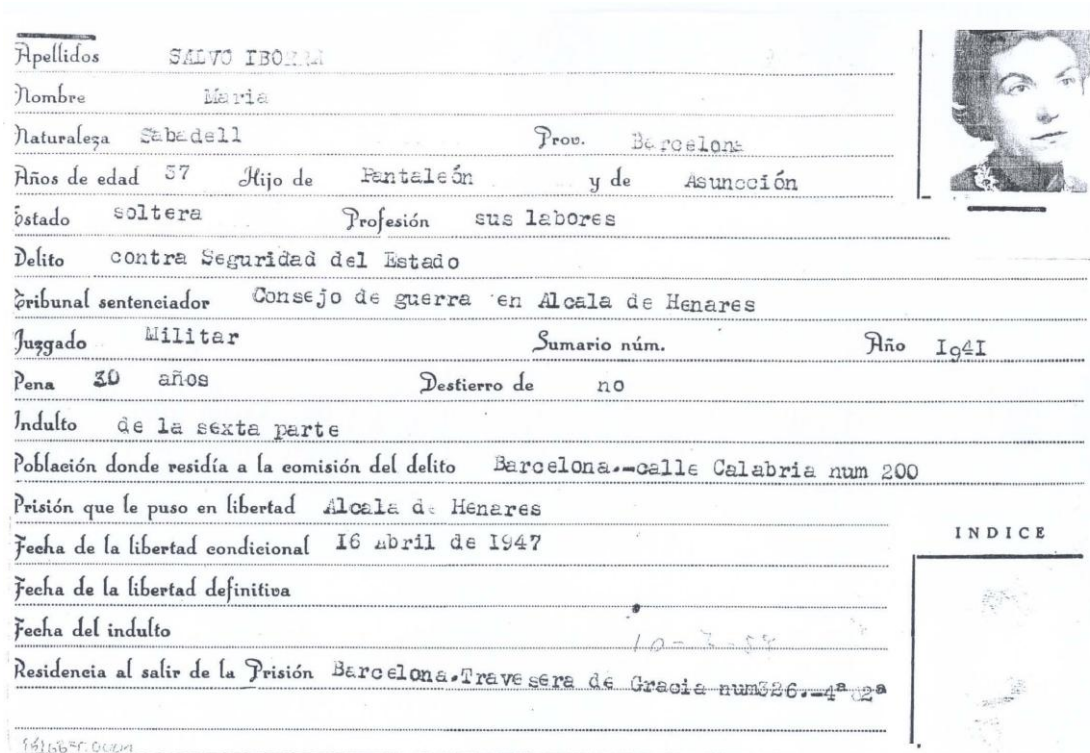 Apellidos SALVO IBORRA
Nombre Maria
Naturaleza Sabadell Prov. Barcelona
Años de edad 37 Hijo de Pantaleón y de Asuncción
Estado soltera Profesión sus labores
Delito contra Seguridad del Estado
Tribunal sentenciador Consejo de guerra en Alcala de Henares
Juzgado Militar Sumario núm. Año I94I
Pena 30 años Destierro de no
Indulto de la sexta parte
Población donde residía a la comisión del delito Barcelona.-calle Calabria num 200
Prisión que le puso en libertad Alcala de Henares
Fecha de la libertad condicional I6 abril de I947
INDICE
Fecha de la libertad definitiva
Fecha del indulto
Residencia al salir de la Prisión Barcelona.Travesera de Gracia num326.-4ª 2ª